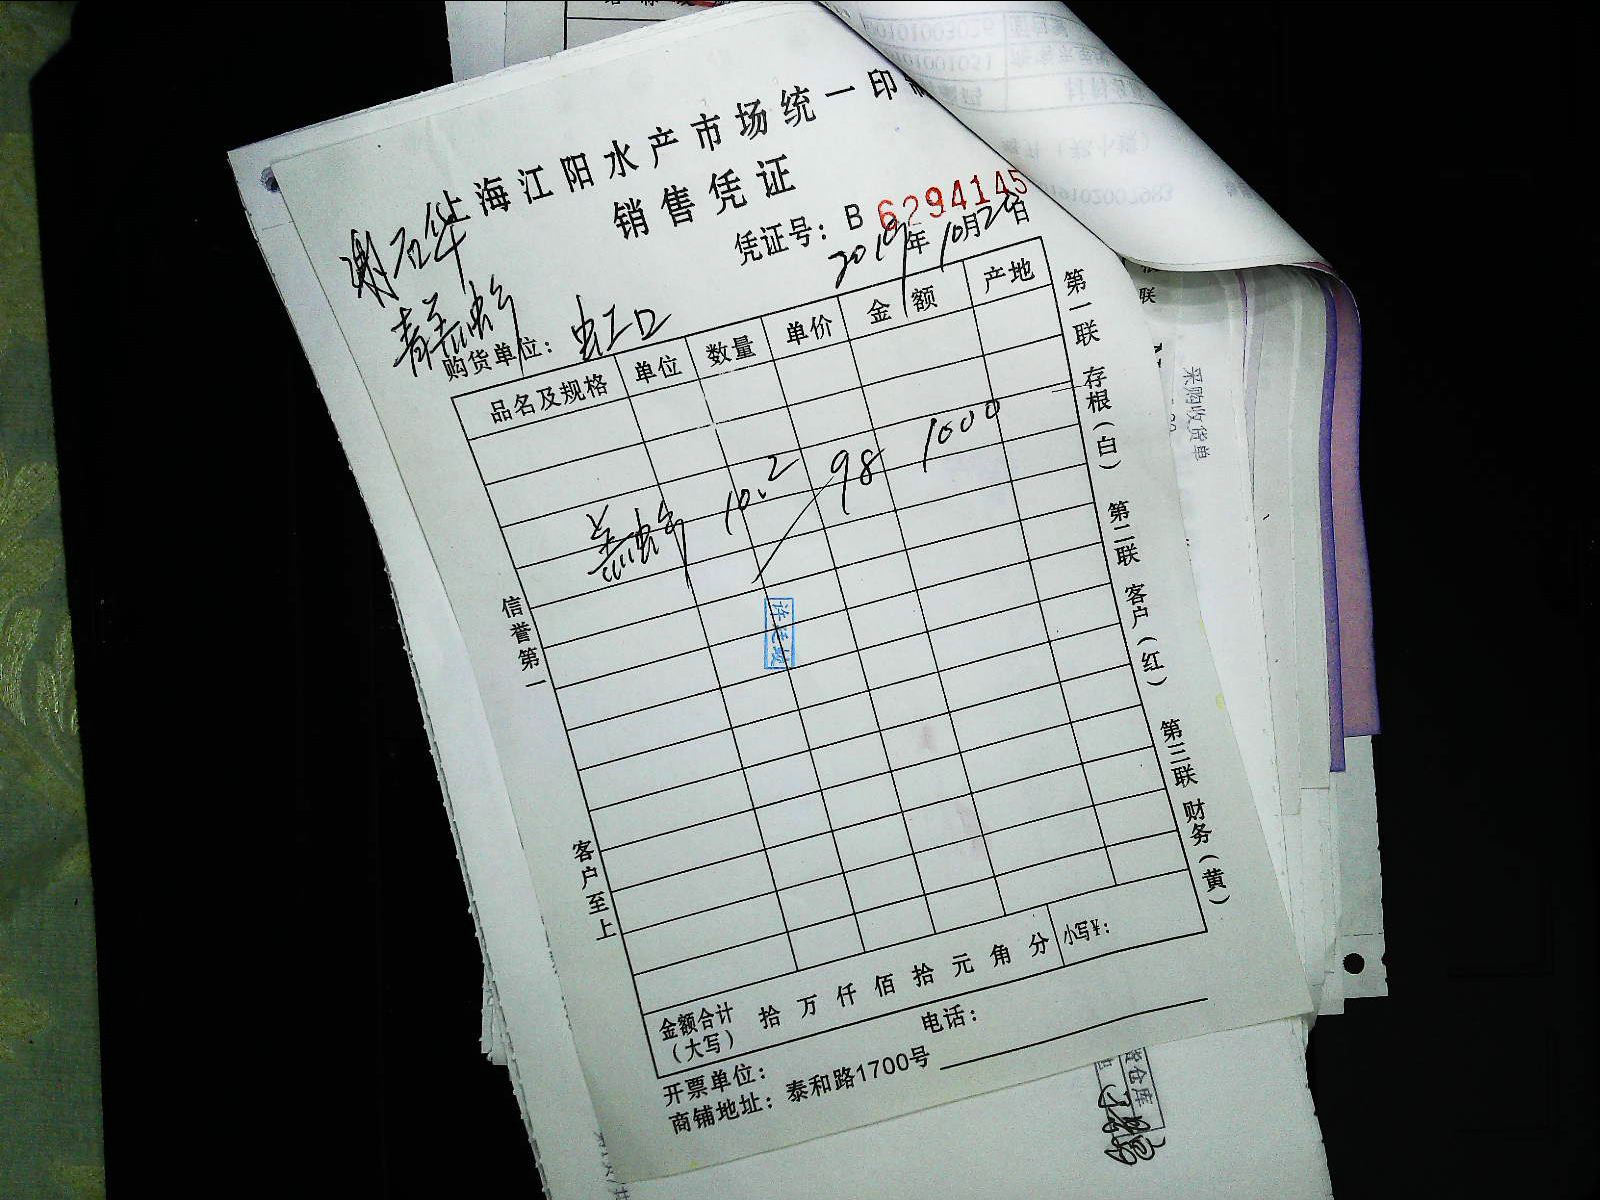 海江阳水产市场统一印
销售凭证
凭证号：B 6294145
2019年10月2 日
谢石华
青羔蟹
购货单位：虹口
品名及规格 单位 数量 单价 金额 产地
羔蟹 10.2 98 1000
信誉第一
客户至上
第一联 存根（白） 第二联 客户（红） 第三联 财务（黄）
金额合计（大写） 拾 万 仟 佰 拾 元 角 分 小写¥：
开票单位： 电话：
商铺地址：泰和路1700号
采购收货单